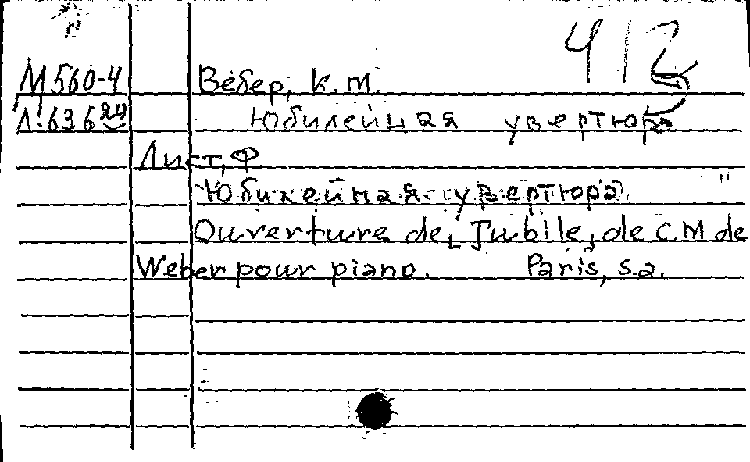 412
М560-4 Вебер, К. М.
Л.636 Юбилейная увертюра
Лист, Ф
Юбилейная увертюра.
Ouverture de, Jubile, de C. M de
Weber pour piano. Paris, s.a.